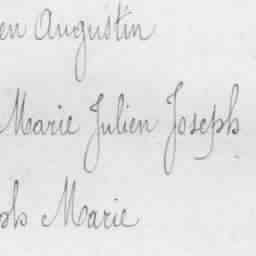 en Augustin
Marie Julien Joseph
ph Marie